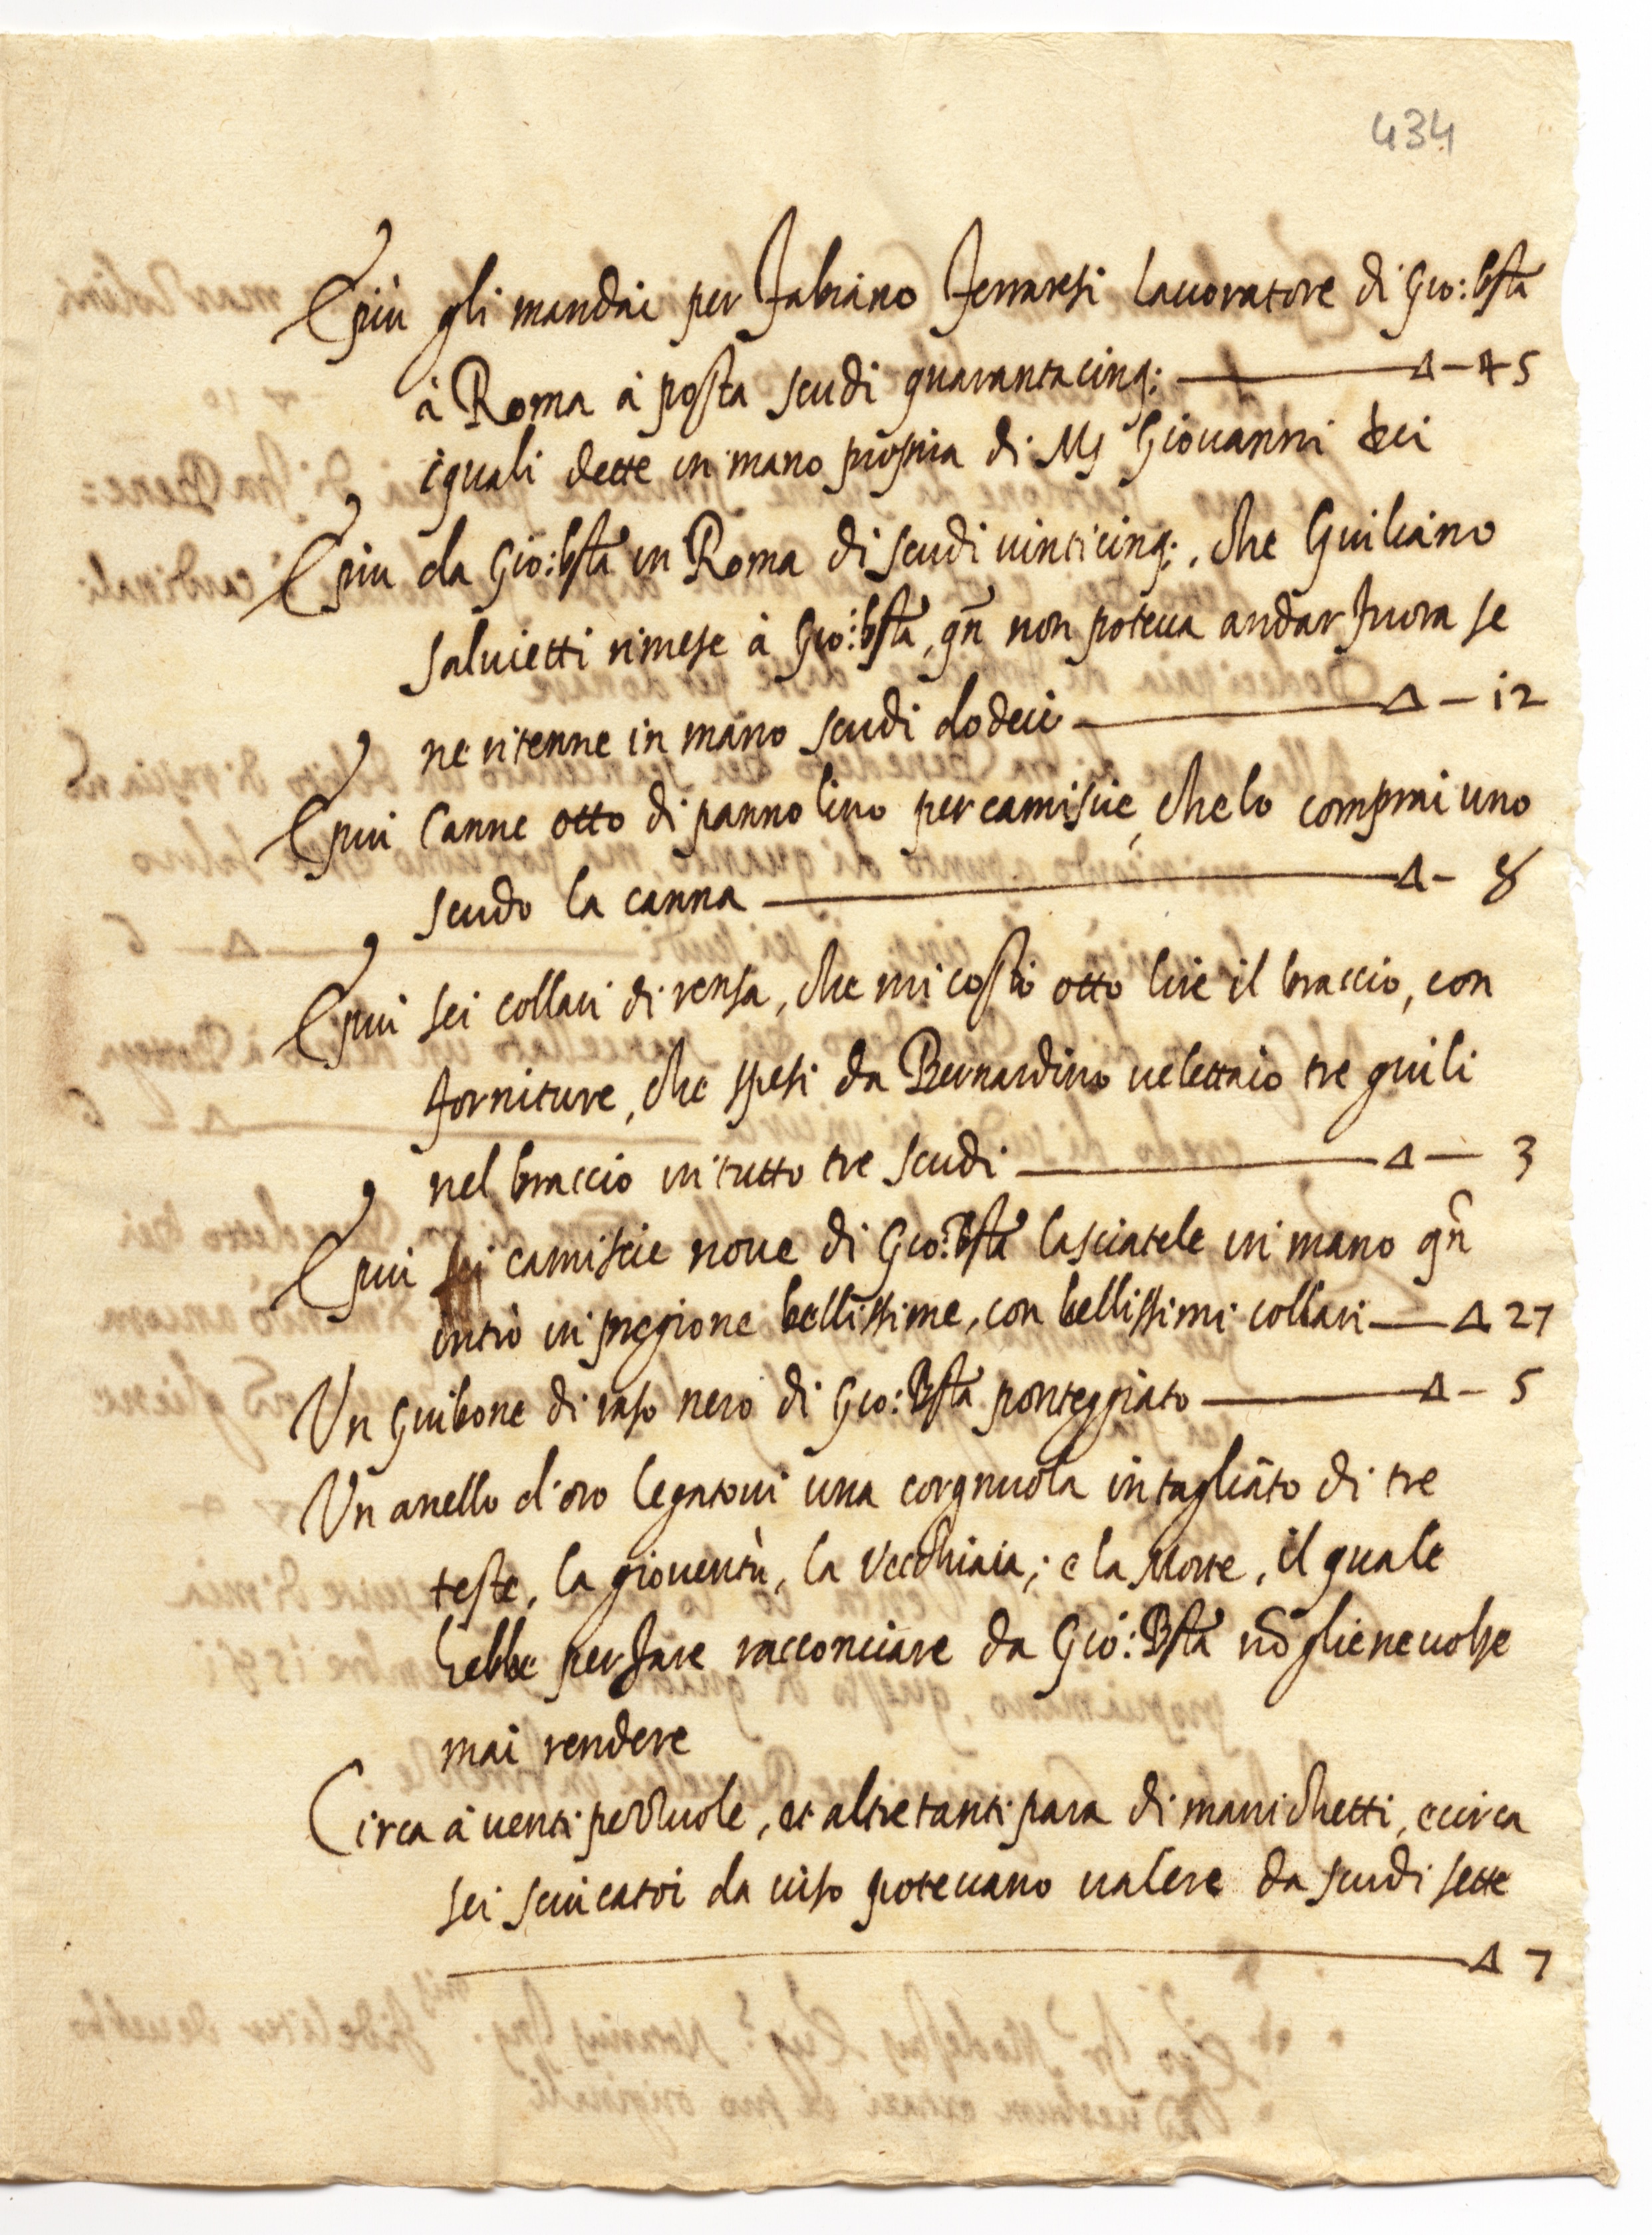 434
E più gli mandai per Fabiano Ferraresi lauoratore di Gio: bsta
à Roma à posta scudi quarantacinq: — Δ — 45
iquali dette in mano propria di Ms Giouanni dei
E piu da Gio: bsta in Roma di scudi uinticinq:, che Giuliano
Saluietti rimese à Gio: bsta, qn non poteua andar fuora se
ne ritenne in mano scudi dodeci — Δ — 12
E piu Canne otto di panno lino per camiscie, che lo comprai uno
scudo la canna — Δ — 8
E piu sei collari di rensa, che mi costò otto lire il braccio, con
forniture, che spesi da Bernardino uelettaio tre giuli
nel braccio in tutto tre scudi — Δ — 3
E piu sei camiscie noue di Gio: bsta lasciatele in mano qn
intrò in pregione bellissime, con bellissimi collari — Δ 27
Un Giubone di raso nero di Gio: Bsta ponteggiato — Δ — 5
Un anello d'oro legatoui una corgnuola intagliato di tre
teste, la giouentù, la Vecchiaia; e la Morte, il quale
hebbe per fare racconciare da Gio: Bsta nō gliene uolse
mai rendere
Circa à uenti pezzuole, et altretanti para di manichetti, e circa
sei sciucatoi da uiso poteuano ualere da scudi sette
— Δ 7